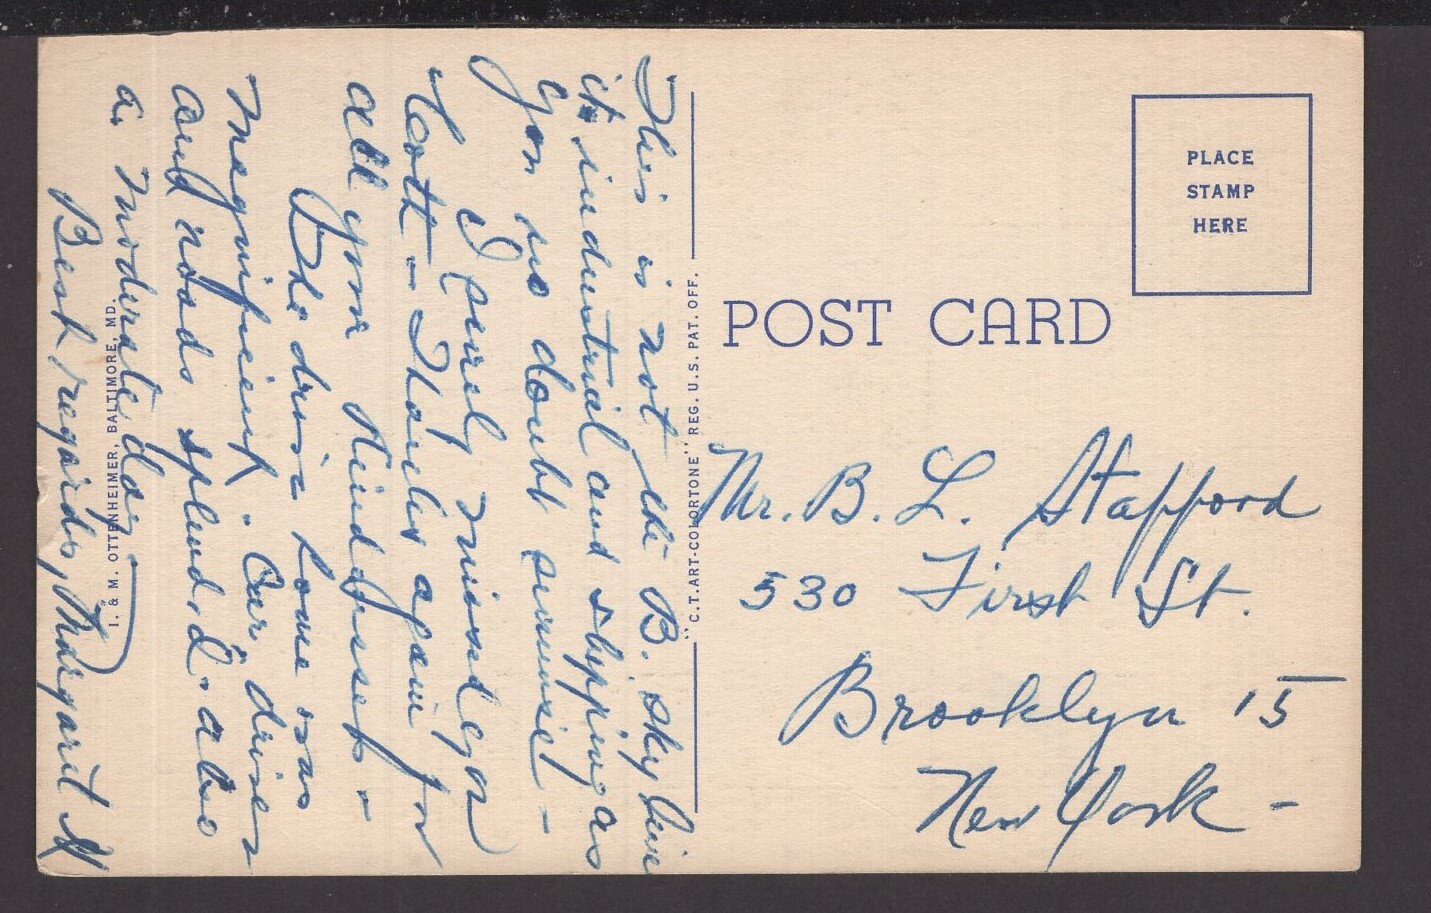 This is not the B. sky line
it industrial and shipping as
you no doubt surmise! -
I surely missed you
both - Thanks again for
all your kindnesses -
The drive home was
magnificent. Our driver
and roads splendid - also
a moderate day.
Best regards, Margaret
I. & M. OTTENHEIMER, BALTIMORE, MD.
"C.T. ART-COLORTONE" REG. U.S. PAT. OFF.
POST CARD
PLACE
STAMP
HERE
Mr. B. L. Stafford
530 First St.
Brooklyn 15
New York -